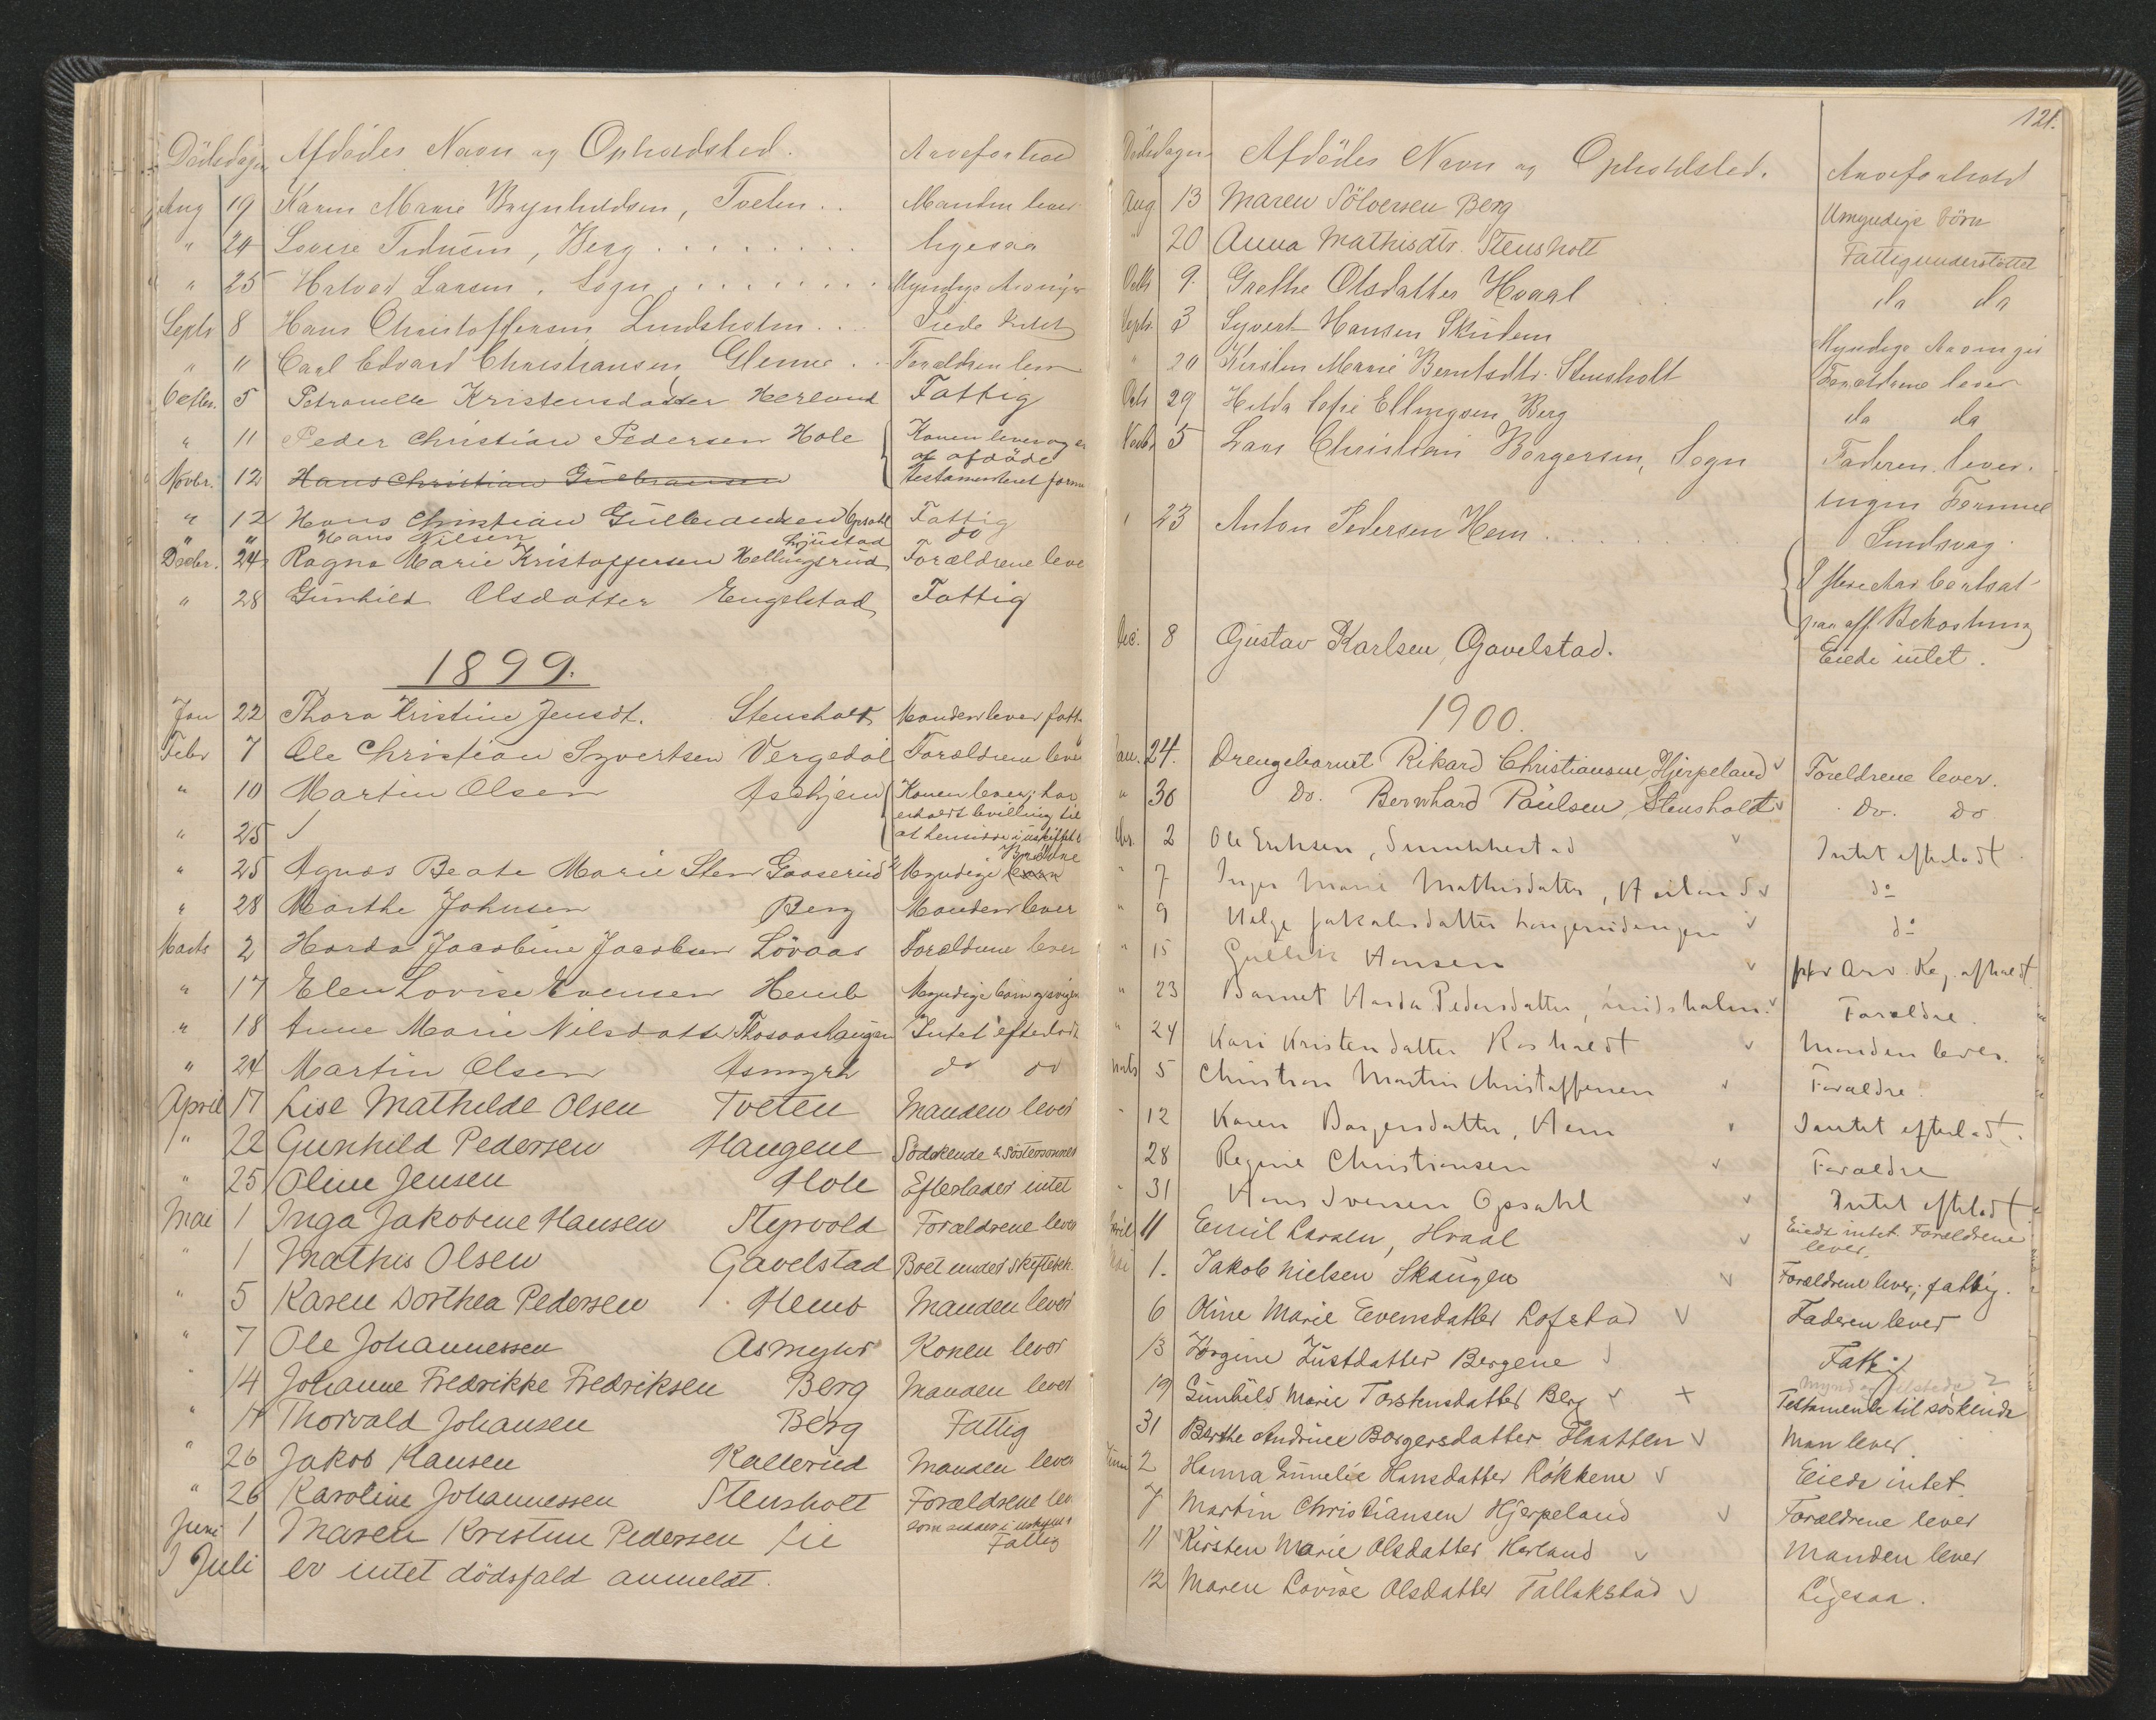 Dödsdagen Afdödes Navn og Opholdsted. Arveforhold
Aug 19 Karen Marie Brynhildsen, Tveten . . Manden lever
" 24 Lovise , Berg . . . . . . . . ligesaa
" 25 Halvor Larsen, Sogn . . . . . . . . Myndige Arvinger
Septr 8 Hans Christoffersen, Lindsholm . . Eiede Intet
" " Carl Edvard Christiansen, Glenne . . Forældren lever
Octbr. 5 Petronelle Kristensdatter Herland Fattig
" 11 Peder Christian Pedersen Hole Konen lever og er
af afdöde
Novbr. 12 Hans Christian Gulbransen testamenteret formu
" 12 Hans Christian Gulbrandsen Opsahl Fattig
" " Hans Nilsen Ljustad do
Decbr. 24 Ragna Marie Kristoffersen Hellingsrud Forældrene leve
" 28 Gunhild Olsdatter Engelstad Fattig
1899.
Jan 22 Thora Kristine Jensdt. Stensholt Manden lever fatt
Febr 7 Ole Christian Syvertsen Vergedal Forældrene leve
" 10 Martin Olsen Askjem Konen lever; har
erholdt bevilling til
" 25 at hensidde i uskiftet
Forældrene
" 25 Agnes Beate Marie Sten Gaaserud Myndige
" 28 Marthe Johnsen Berg Manden lever
Marts 2 Harda Jacobine Jacobsen Lövaas Forældrene lever
" 17 Elen Lovise Evensen Hemb Myndige börn og svigers
" 18 Anne Marie Nilsdatter Intet efterladt
" 24 Martin Olsen Asmyrh do do
April 17 Lise Mathilde Olsen Tveten Manden lever
" 22 Gunhild Pedersen Haugene Södskende & söstersönner
" 25 Oline Jensen Hole Efterlader intet
Mai 1 Inga Jakobene Hansen Styrvold Forældrene lever
" 1 Mathis Olsen Gavelstad Boet under skiftebeh.
" 5 Karen Dorthea Pedersen Hemb Manden lever
" 7 Ole Johannessen Asmyhr Konen lever
" 14 Johanne Fredrikke Fredriksen Berg Manden lever
" 17 Thorvald Johansen Berg Fattig
" 26 Jakob Hansen Kallerud Manden lever
" 26 Karoline Johannessen Stensholt Forældrene lev
som sidder i uskiftet
Juni 1 Maren Kristine Pedersen Lie Fattig
I Juli er intet dödsfald anmeldt.
121.
Dödsdagen Afdödes Navn og Opholdsted. Arveforhold
Aug 13 Maren Sölversen Berg Umyndige Börn
" 20 Anna Mathisdtr. Stensholt Fattigunderstöttet
9. Grethe Olsdatter Hvaal do do
Septr. 3 Syvert Hansen Skulem Myndige Arvinger
" 20 Kirsten Marie Berntsdtr. Stensholt Forældrene lever
Octr 29 Hilda Sofie Ellingsen, Berg do do
Novbr 5 Lars Christian Borgersen, Sogn Faderen lever.
ingen Formue
" 23 Anton Pedersen Hem . . . . . . Sindsvag.
I flere Aar bortsat
paa off. Bekostning
Dec. 8 Gustav Karlsen, Gavelstad. Eiede intet.
1900.
Jan. 24. Drengebarnet Rikard Christiansen, Hjerpeland Foreldrene lever.
" 30 Do. Bernhard Paulsen, Stensholdt Do. Do
Febr. 2 Ole Eriksen, Intet efterladt
" 7 Inger Marie Mathisdatter, do
" 9 Helge Jakobsdatter do
" 15 Gullik Hansen afholdt
" 23 Barnet Harda Pedersdatter, Forældre.
" 24 Kari Kristendatter Roskoldt Manden lever.
Marts 5 Christian Martin Christoffersen Forældre.
" 12 Karen Borgersdatter, Hem Intet efterladt.
" 28 Regine Christiansen Forældre
" 31 Hans Iversen Opsahl Intet efterladt
April 11 Emil Larsen, Hvaal Eiede intet. Forældrene
lever.
Mai 1. Jakob Nielsen Skaugen Forældrene lever; fattig.
6 Oline Marie Evensdatter Lofstad Faderen lever
13 Jörgine Justdatter Bergene Fattig
19 Gunhild Marie Torstensdatter Berg × Testamente til söskende
31 Berthe Andrine Borgersdatter Flaatten Man lever.
Juni 2 Hanna Emelie Hansdatter Rökkene Eiede intet
7 Martin Christiansen Hjerpeland Forældrene lever
11 Kirsten Marie Olsdatter Herland Manden lever
12 Maren Lovise Olsdatter Tallakstad Ligesaa.